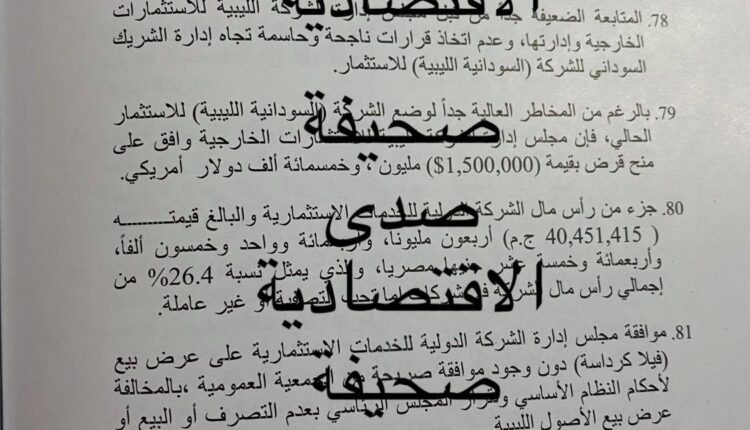 78. المتابعة الضعيفة جداً من قبل مجلس إدارة الشركة الليبية للاستثمارات
الخارجية وإدارتها، وعدم اتخاذ قرارات ناجحة وحاسمة تجاه إدارة الشريك
السوداني للشركة (السودانية الليبية) للاستثمار.
79. بالرغم من المخاطر العالية جداً لوضع الشركة (السودانية الليبية) للاستثمار
الحالي، فإن مجلس إدارة الليبية للاستثمارات الخارجية وافق على
منح قرض بقيمة (1,500,000$) مليون، وخمسمائة ألف دولار أمريكي.
80. جزء من رأس مال الشركة الدولية للخدمات الاستثمارية والبالغ قيمتـــــــه
( 40,451,415 ج.م) أربعون مليوناً، وأربعمائة وواحد وخمسون ألفاً،
وأربعمائة وخمسة عشر جنيها مصريا، والذي يمثل نسبة 26.4% من
إجمالي رأس مال الشركة في شركات إما تحت التصفية أو غير عاملة.
81. موافقة مجلس إدارة الشركة الدولية للخدمات الاستثمارية على عرض بيع
(فيلا كرداسة) دون وجود موافقة صريحة من الجمعية العمومية ،بالمخالفة
لأحكام النظام الأساسي وقرار المجلس الرئاسي بعدم التصرف أو البيع أو
عرض بيع الأصول الليبية
الاقتصادية
صحيفة
صدى
الاقتصادية
صحيفة